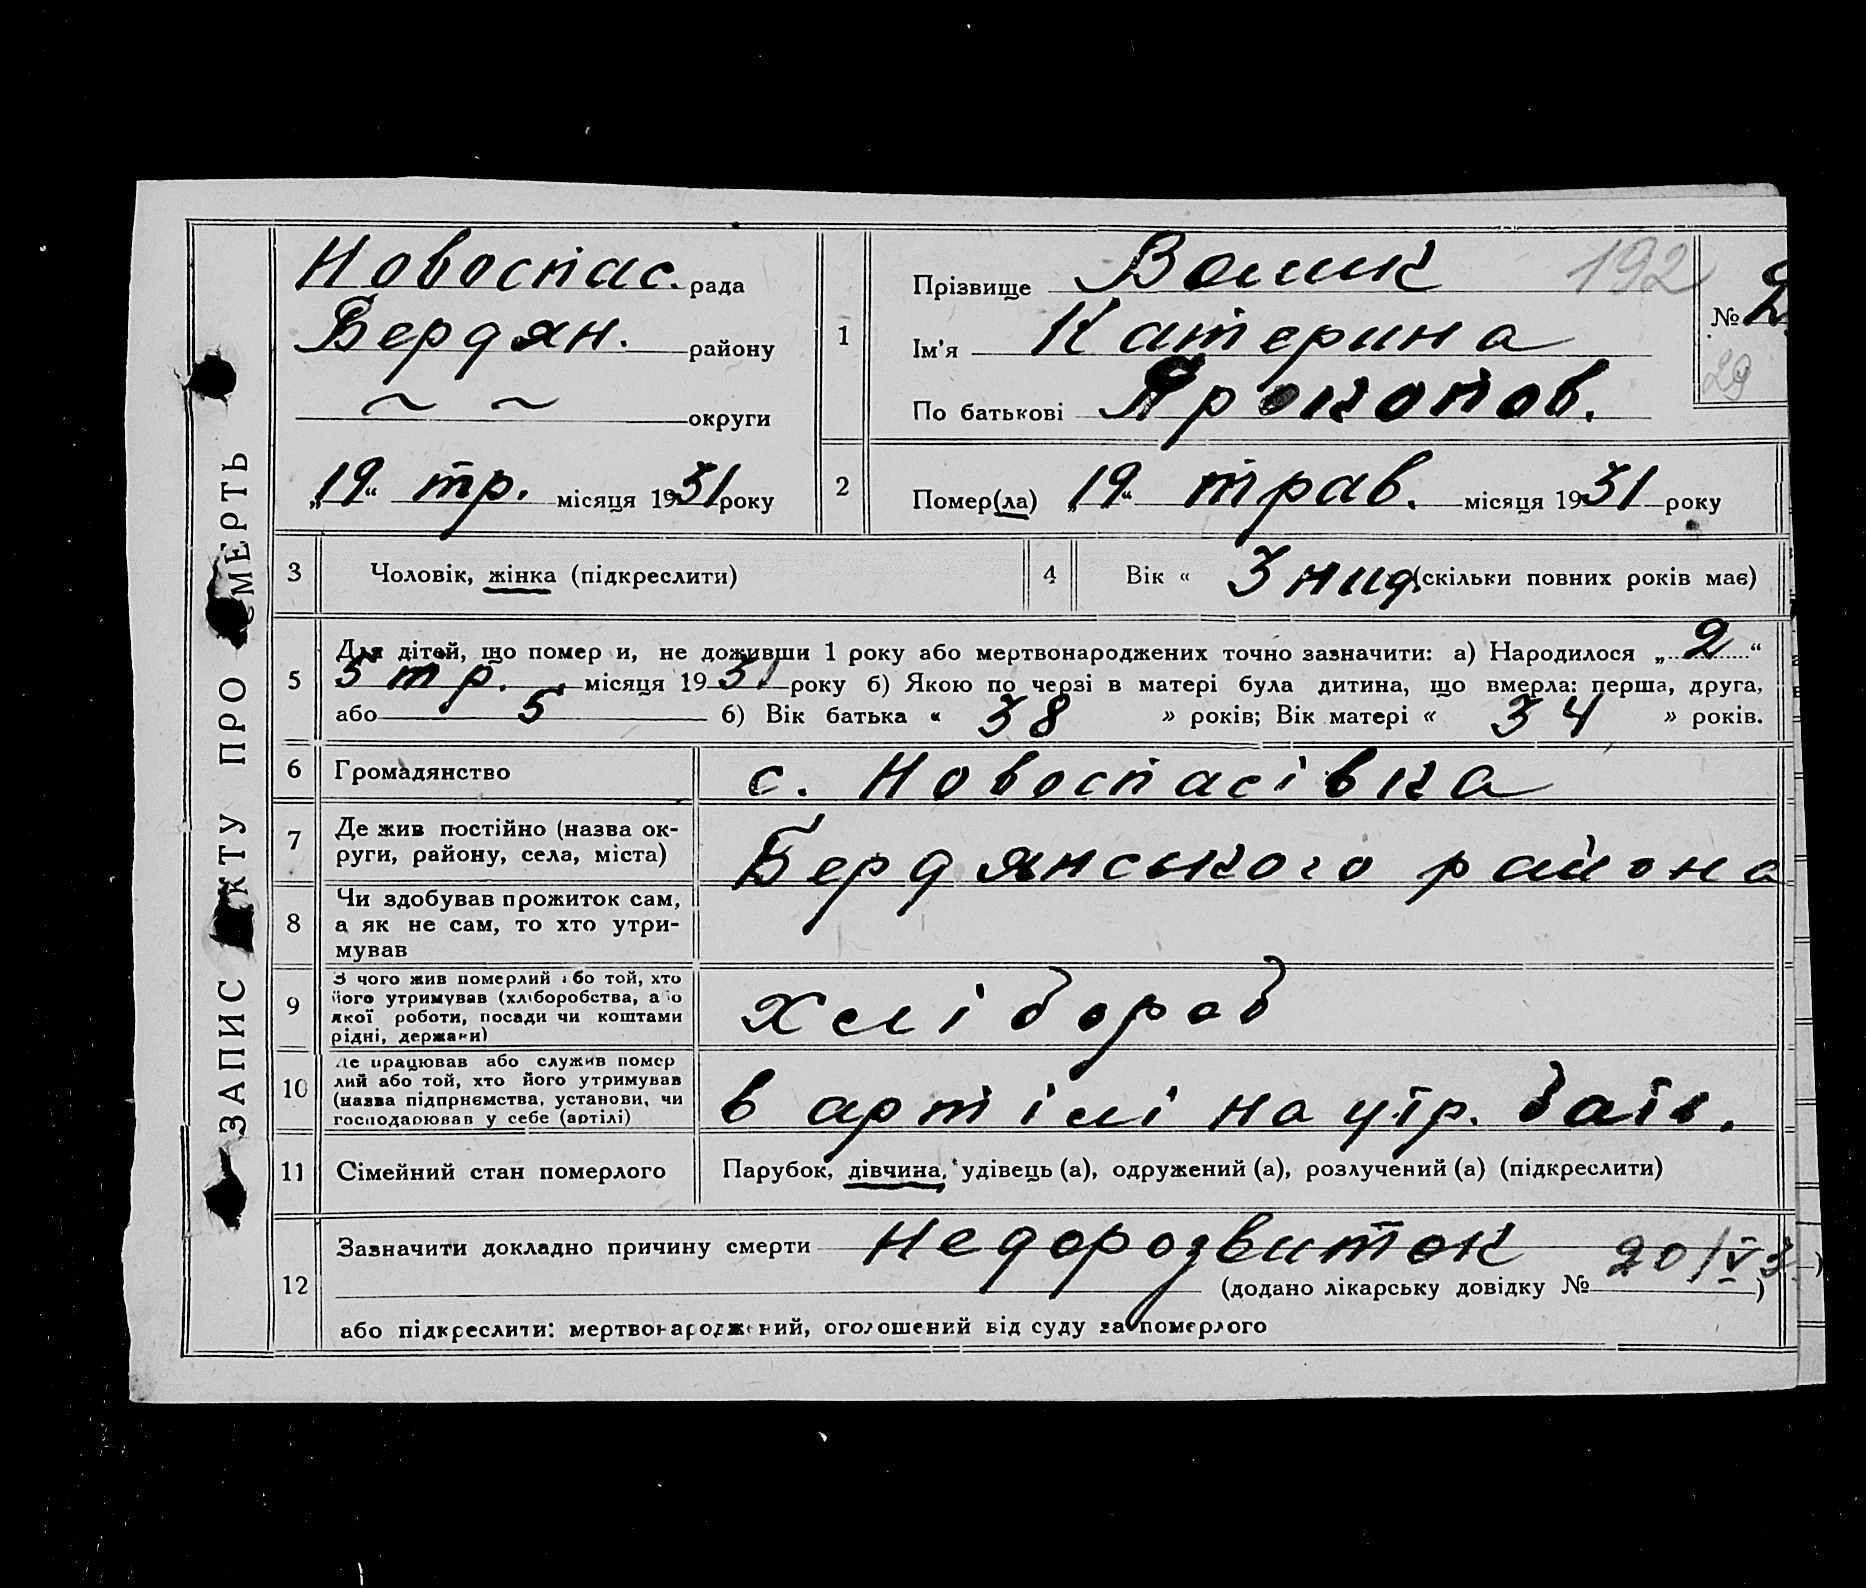 ЗАПИС АКТУ ПРО СМЕРТЬ
Новоспас. рада
Бердян. району
~ ~ округи
„19“ тр. місяця 1931 року
1
Прізвище Волик
192
Ім'я Катерина
По батькові Прокопов.
№ 2
29
2
Помер(ла) „19“ трав. місяця 1931 року
3
Чоловік, жінка (підкреслити)
4
Вік « 3 нид. (скільки повних років має)
5
Для дітей, що помер и, не доживши 1 року або мертвонароджених точно зазначити: а) Народилося „ 2 “
5 тр. місяця 1931 року б) Якою по черзі в матері була дитина, що вмерла: перша, друга,
або 5 б) Вік батька « 38 » років; Вік матері « 34 » років.
6
Громадянство
с. Новоспасівка
7
Де жив постійно (назва ок-
руги, району, села, міста)
Бердянського района
8
Чи здобував прожиток сам,
а як не сам, то хто утри-
мував
9
З чого жив померлий або той, хто
його утримував (хліборобства, або
якої роботи, посади чи коштами
рідні, держави)
Хлібороб
10
Де працював або служив помер
лий або той, хто його утримував
(назва підприємства, установи, чи
господарював у себе (артілі)
в артілі на утр. бать.
11
Сімейний стан померлого
Парубок, дівчина, удівець (а), одружений (а), розлучений (а) (підкреслити)
12
Зазначити докладно причину смерти Недорозвиток
(додано лікарську довідку № 20/V 3 )
або підкреслити: мертвонароджений, оголошений від суду за померлого